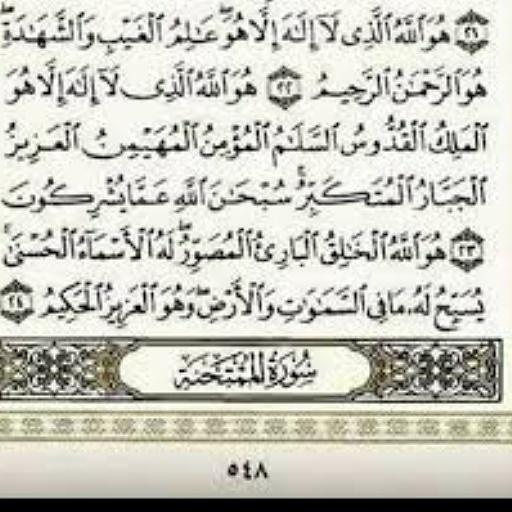 ٢١ هُوَ ٱللَّهُ ٱلَّذِى لَآ إِلَٰهَ إِلَّا هُوَ ۖ عَٰلِمُ ٱلْغَيْبِ وَٱلشَّهَٰدَةِ ۖ
هُوَ ٱلرَّحْمَٰنُ ٱلرَّحِيمُ ٢٢ هُوَ ٱللَّهُ ٱلَّذِى لَآ إِلَٰهَ إِلَّا هُوَ
ٱلْمَلِكُ ٱلْقُدُّوسُ ٱلسَّلَٰمُ ٱلْمُؤْمِنُ ٱلْمُهَيْمِنُ ٱلْعَزِيزُ
ٱلْجَبَّارُ ٱلْمُتَكَبِّرُ ۚ سُبْحَٰنَ ٱللَّهِ عَمَّا يُشْرِكُونَ
٢٣ هُوَ ٱللَّهُ ٱلْخَٰلِقُ ٱلْبَارِئُ ٱلْمُصَوِّرُ ۖ لَهُ ٱلْأَسْمَآءُ ٱلْحُسْنَىٰ ۚ
يُسَبِّحُ لَهُۥ مَا فِى ٱلسَّمَٰوَٰتِ وَٱلْأَرْضِ ۖ وَهُوَ ٱلْعَزِيزُ ٱلْحَكِيمُ ٢٤
سُورَةُ المُمْتَحَنَةِ
٥٤٨